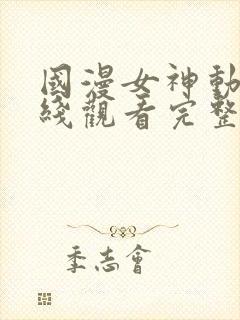 國漫女神動
綫觀看完整
季志會